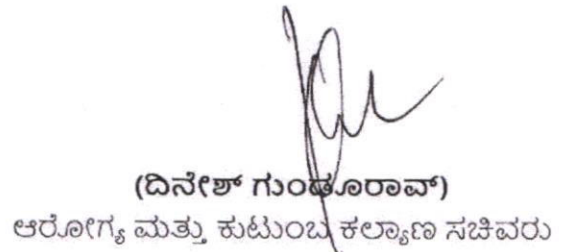 (ದಿನೇಶ್ ಗುಂಡೂರಾವ್)
ಆರೋಗ್ಯ ಮತ್ತು ಕುಟುಂಬ ಕಲ್ಯಾಣ ಸಚಿವರು